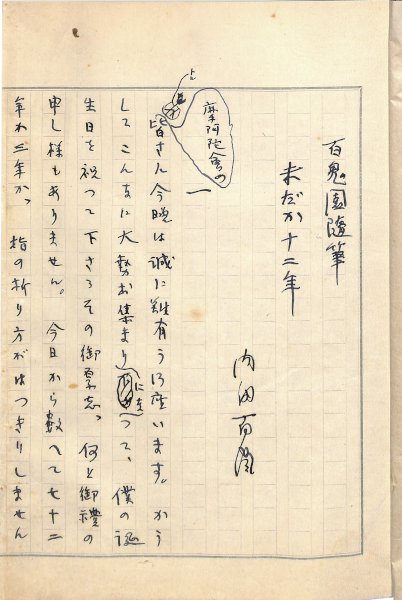 百鬼園随筆
まだか十二年
内田百閒
摩阿陀會の
一
皆さん今晩は誠に難有う御座います。かう
してこんなに大勢お集まりになつて、僕の誕
生日を祝つて下さるその御意志、何と御禮の
申し様もありません。今日から数へて七十二
年か三年か、指の折り方がはつきりしません